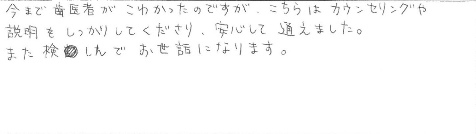 今まで歯医者がこわかったのですが、こちらはカウンセリングや
説明をしっかりしてくださり、安心して通えました。
また検しんでお世話になります。